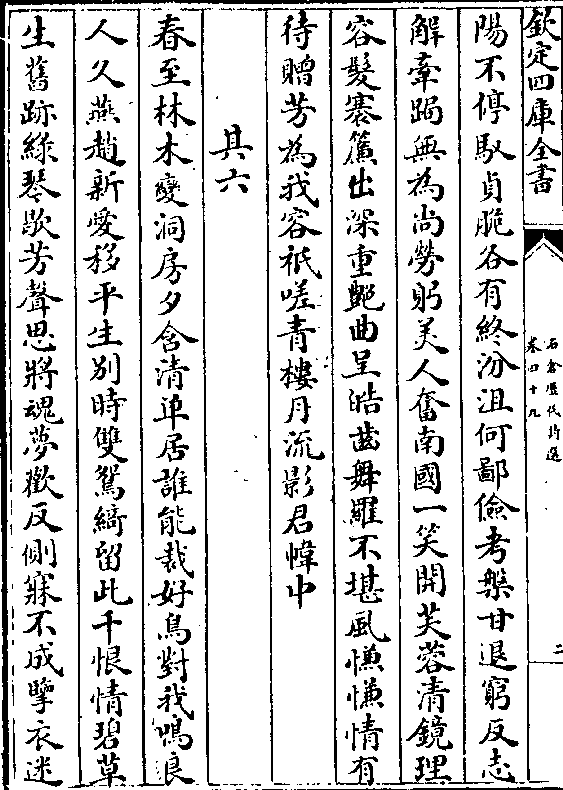 欽定四庫全書
石倉歷代詩選
卷四十九
二
陽不停馭貞脆各有終汾沮何鄙儉考槃甘退窮反志
解牽跼無為尚勞躬美人奮南國一笑開芙蓉清鏡理
容髮褰簾出深重艶曲呈皓齒舞羅不堪風慊慊情有
待贈芳為我容祇嗟青樓月流影君幃中
其六
春至林木變洞房夕含清單居誰能裁好鳥對我鳴良
人久燕趙新愛移平生别時雙鴛綺留此千恨情碧草
生舊跡綠琴歇芳聲思將魂夢歡反側寐不成擥衣迷